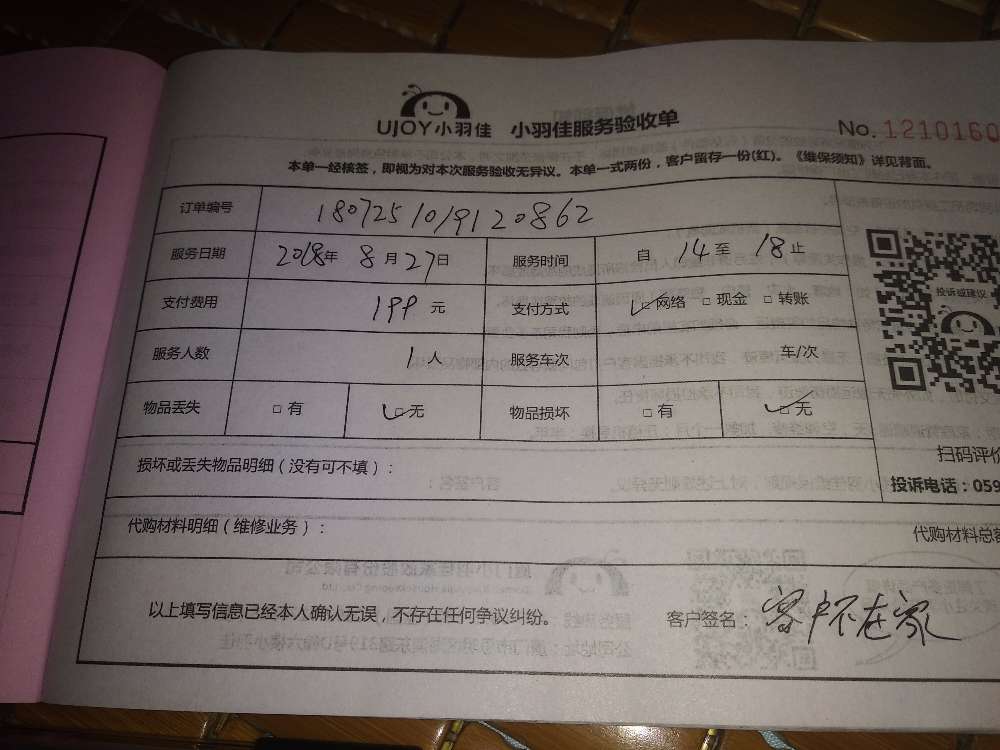 UJOY小羽佳 小羽佳服务验收单 No.1210160
本单一经核签，即视为对本次服务验收无异议。本单一式两份，客户留存一份(红)。《维保须知》详见背面。
订单编号 1807251019120862
服务日期 2018年 8月27日 服务时间 自 14 至 18 止
支付费用 199 元 支付方式 ✓网络 □现金 □转账
服务人数 1人 服务车次 车/次
物品丢失 □有 ✓□无 物品损坏 □有 ✓□无
投诉或建议
损坏或丢失物品明细（没有可不填）：
扫码评价
投诉电话：059
代购材料明细（维修业务）：
代购材料总额
以上填写信息已经本人确认无误，不存在任何争议纠纷。 客户签名：客户不在家